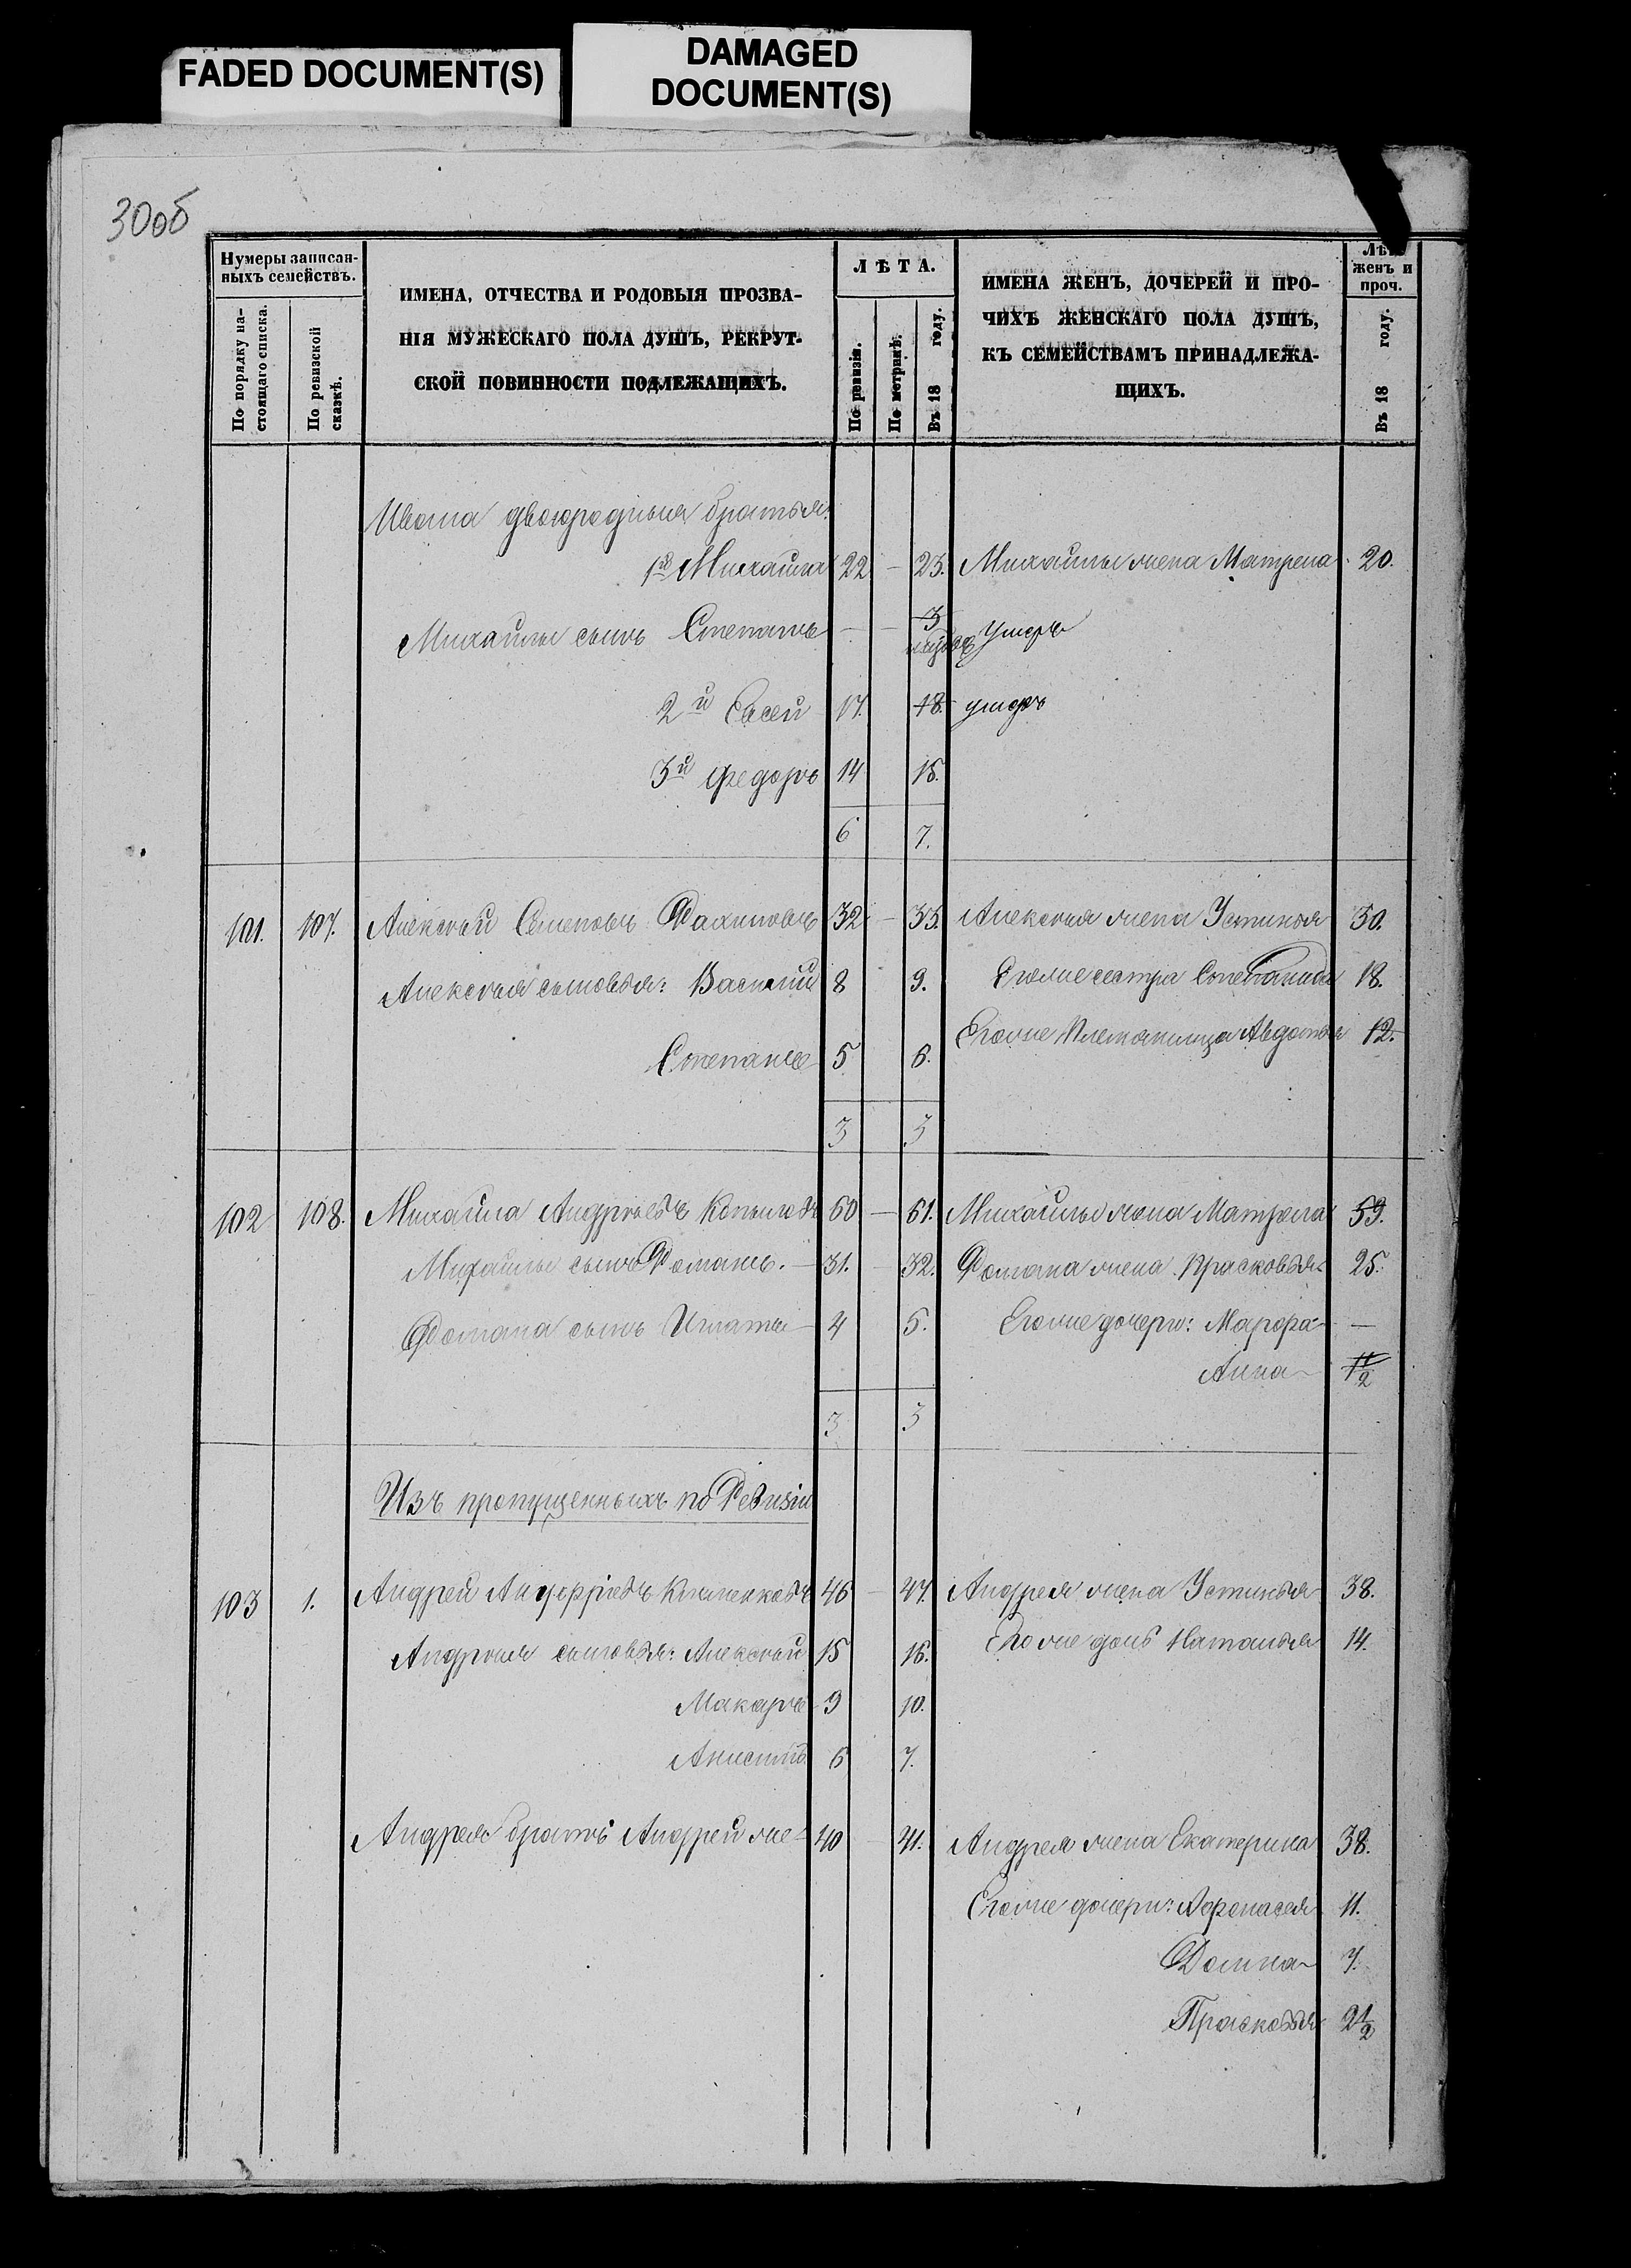 FADED DOCUMENT(S)
DAMAGED
DOCUMENT(S)
30об
Нумеры записан-
ныхъ семействъ.
По порядку на-
стоящаго списка.
По ревизской
сказкѣ.
ИМЕНА, ОТЧЕСТВА И РОДОВЫЯ ПРОЗВА-
НІЯ МУЖЕСКАГО ПОЛА ДУШЪ, РЕКРУТ-
СКОЙ ПОВИННОСТИ ПОДЛЕЖАЩИХЪ.
ЛѢТА.
По ревизіи.
По метрикѣ.
Въ 18 году.
ИМЕНА ЖЕНЪ, ДОЧЕРЕЙ И ПРО-
ЧИХЪ ЖЕНСКАГО ПОЛА ДУШЪ,
КЪ СЕМЕЙСТВАМЪ ПРИНАДЛЕЖА-
ЩИХЪ.
женъ и
проч.
Въ 18 году.
двоюродныя братья:
1й Михайла 22 — 23. Михайлы жена Матрена 20.
Михайлы сынъ Степанъ — — 3 Умеръ
2й Евсей 17. 18. умеръ
3й Федоръ 14 15.
6 7.
101. 107. Алексѣй Семеновъ 32 — 33. Алексѣя жена Устинья 30.
Алексѣя сыновья: Василий 8 9. Егоже сестра Степанида 18.
Степанъ 5 6. Егоже Племянница Авдотья 12.
3 3
102 108. Михайла Андреевъ 60 — 61. Михайлы жена Матрена 59.
Михайлы сынъ Романъ. — 31. — 32. Романа жена Прасковья 25.
Романа сынъ Игнатъ 4 5. Егоже дочери: Марфа —
Анна 1 1/2
3 3
Изъ пропущенныхъ по Ревизіи
103 1. Андрей 46 — 47. Андрея жена Устинья 38.
Андрея сыновья: Алексѣй 15 16. Егоже дочь Наталья 14.
Макаръ 9 10.
Анисимъ 6 7.
Андрея братъ Андрей же 40 — 41. Андрея жена Екатерина 38.
Егоже дочери: Афонасья 11.
Домна 7.
Прасковья 2 1/2